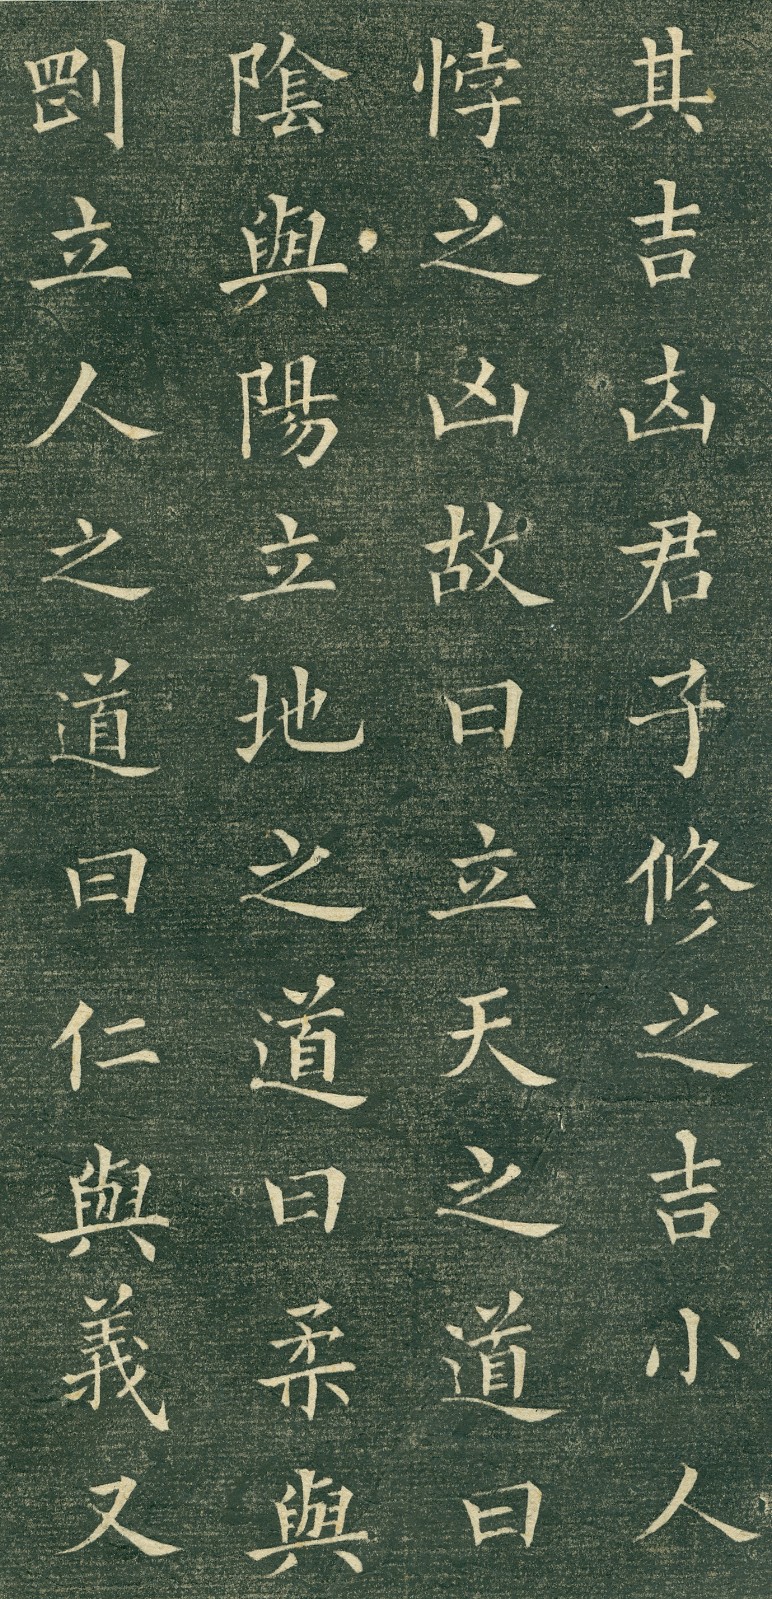 其吉凶君子修之吉小人
悖之凶故曰立天之道曰
陰與陽立地之道曰柔與
剛立人之道曰仁與義又